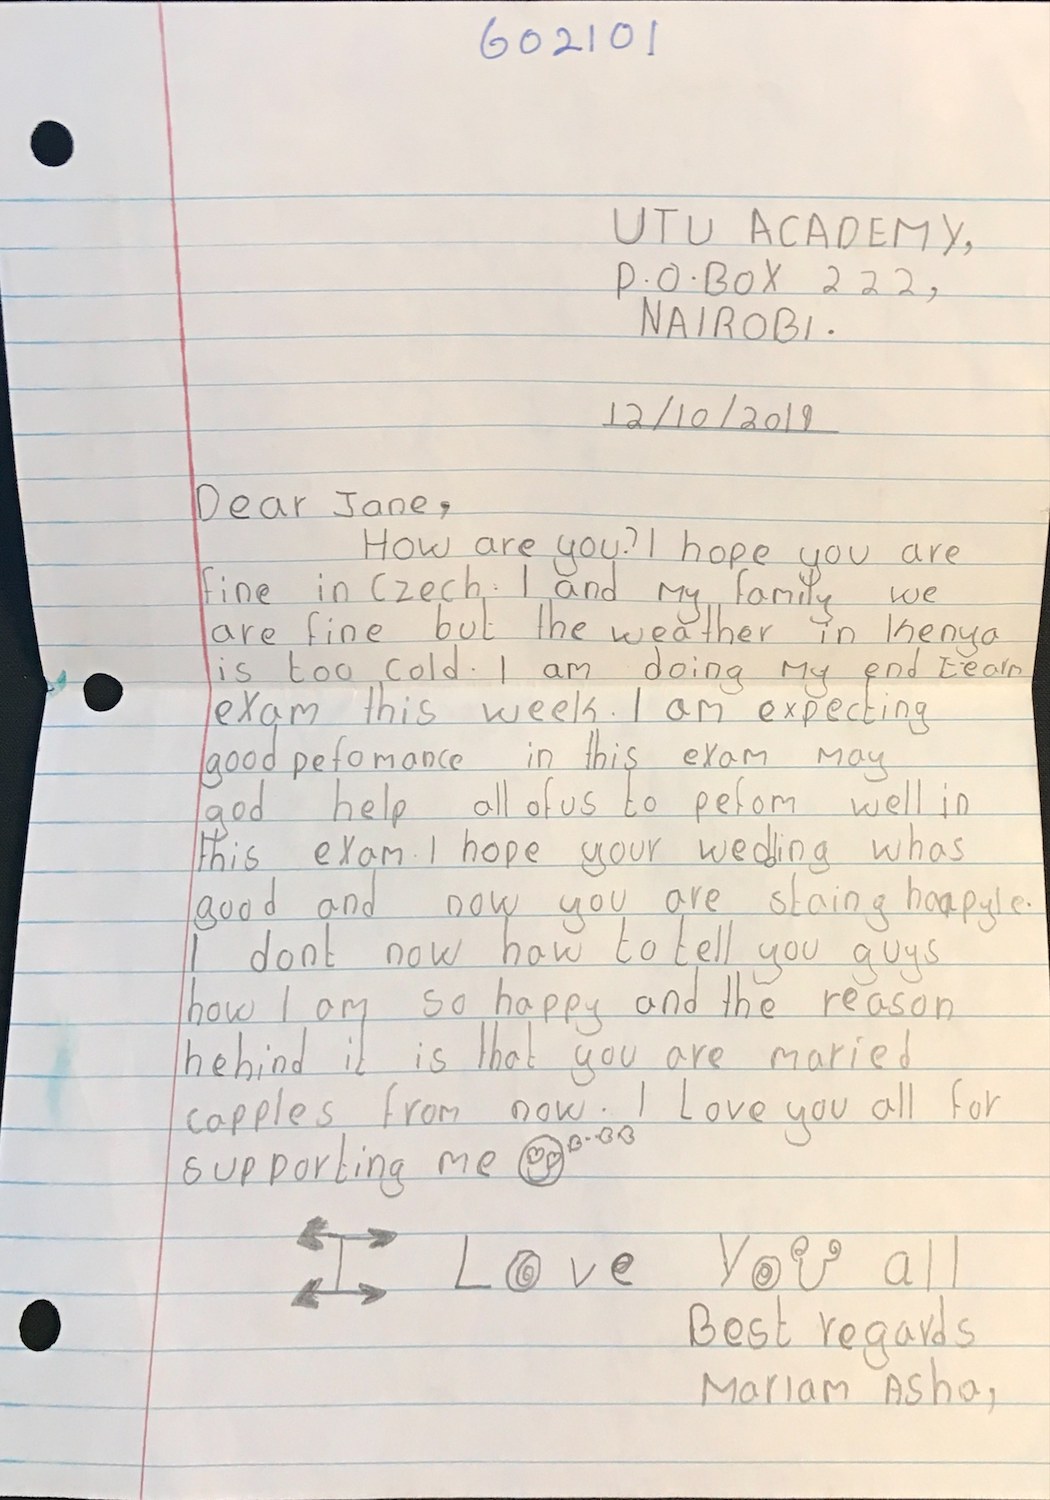 602101
UTU ACADEMY,
P.O.BOX 222,
NAIROBI.
12/10/2019
Dear Jane,
How are you? I hope you are
fine in Czech. I and my family we
are fine but the weather in Kenya
is too cold. I am doing my end
exam this week. I am expecting
good pefomance in this exam may
god help all of us to pefom well in
this exam. I hope your wedding whas
good and now you are staing haapyle.
I dont now haw to tell you guys
how I am so happy and the reason
behind it is that you are maried
capples from now. I Love you all for
supporting me
I Love You all
Best regards
Mariam Asha,